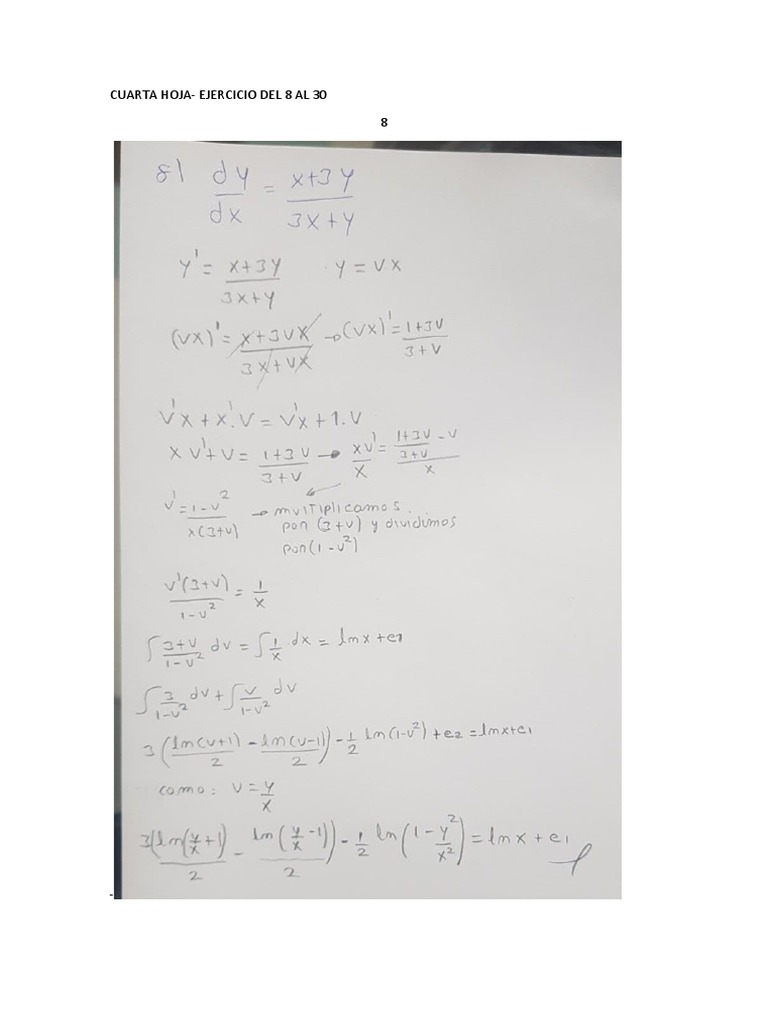 CUARTA HOJA- EJERCICIO DEL 8 AL 30
8
8) dy/dx = x+3y/3x+y
y' = x+3y/3x+y   y = vx
(vx)' = x+3vx/3x+vx → (vx)' = 1+3v/3+v
v'x + x'.v = v'x + 1.v
xv'+v = 1+3v/3+v → xv'/x = 1+3v/3+v - v/x
v' = 1-v²/x(3+v) → multiplicamos
por (3+v) y dividimos
por (1-v²)
v'(3+v)/1-v² = 1/x
∫ 3+v/1-v² dv = ∫ 1/x dx = ln x + c1
∫ 3/1-v² dv + ∫ v/1-v² dv
3 (ln(v+1)/2 - ln(v-1)/2) - 1/2 ln(1-v²) + c2 = lnx+c1
como: v = y/x
3(ln(y/x+1)/2 - ln(y/x-1)/2) - 1/2 ln(1 - y²/x²) = ln x + c1